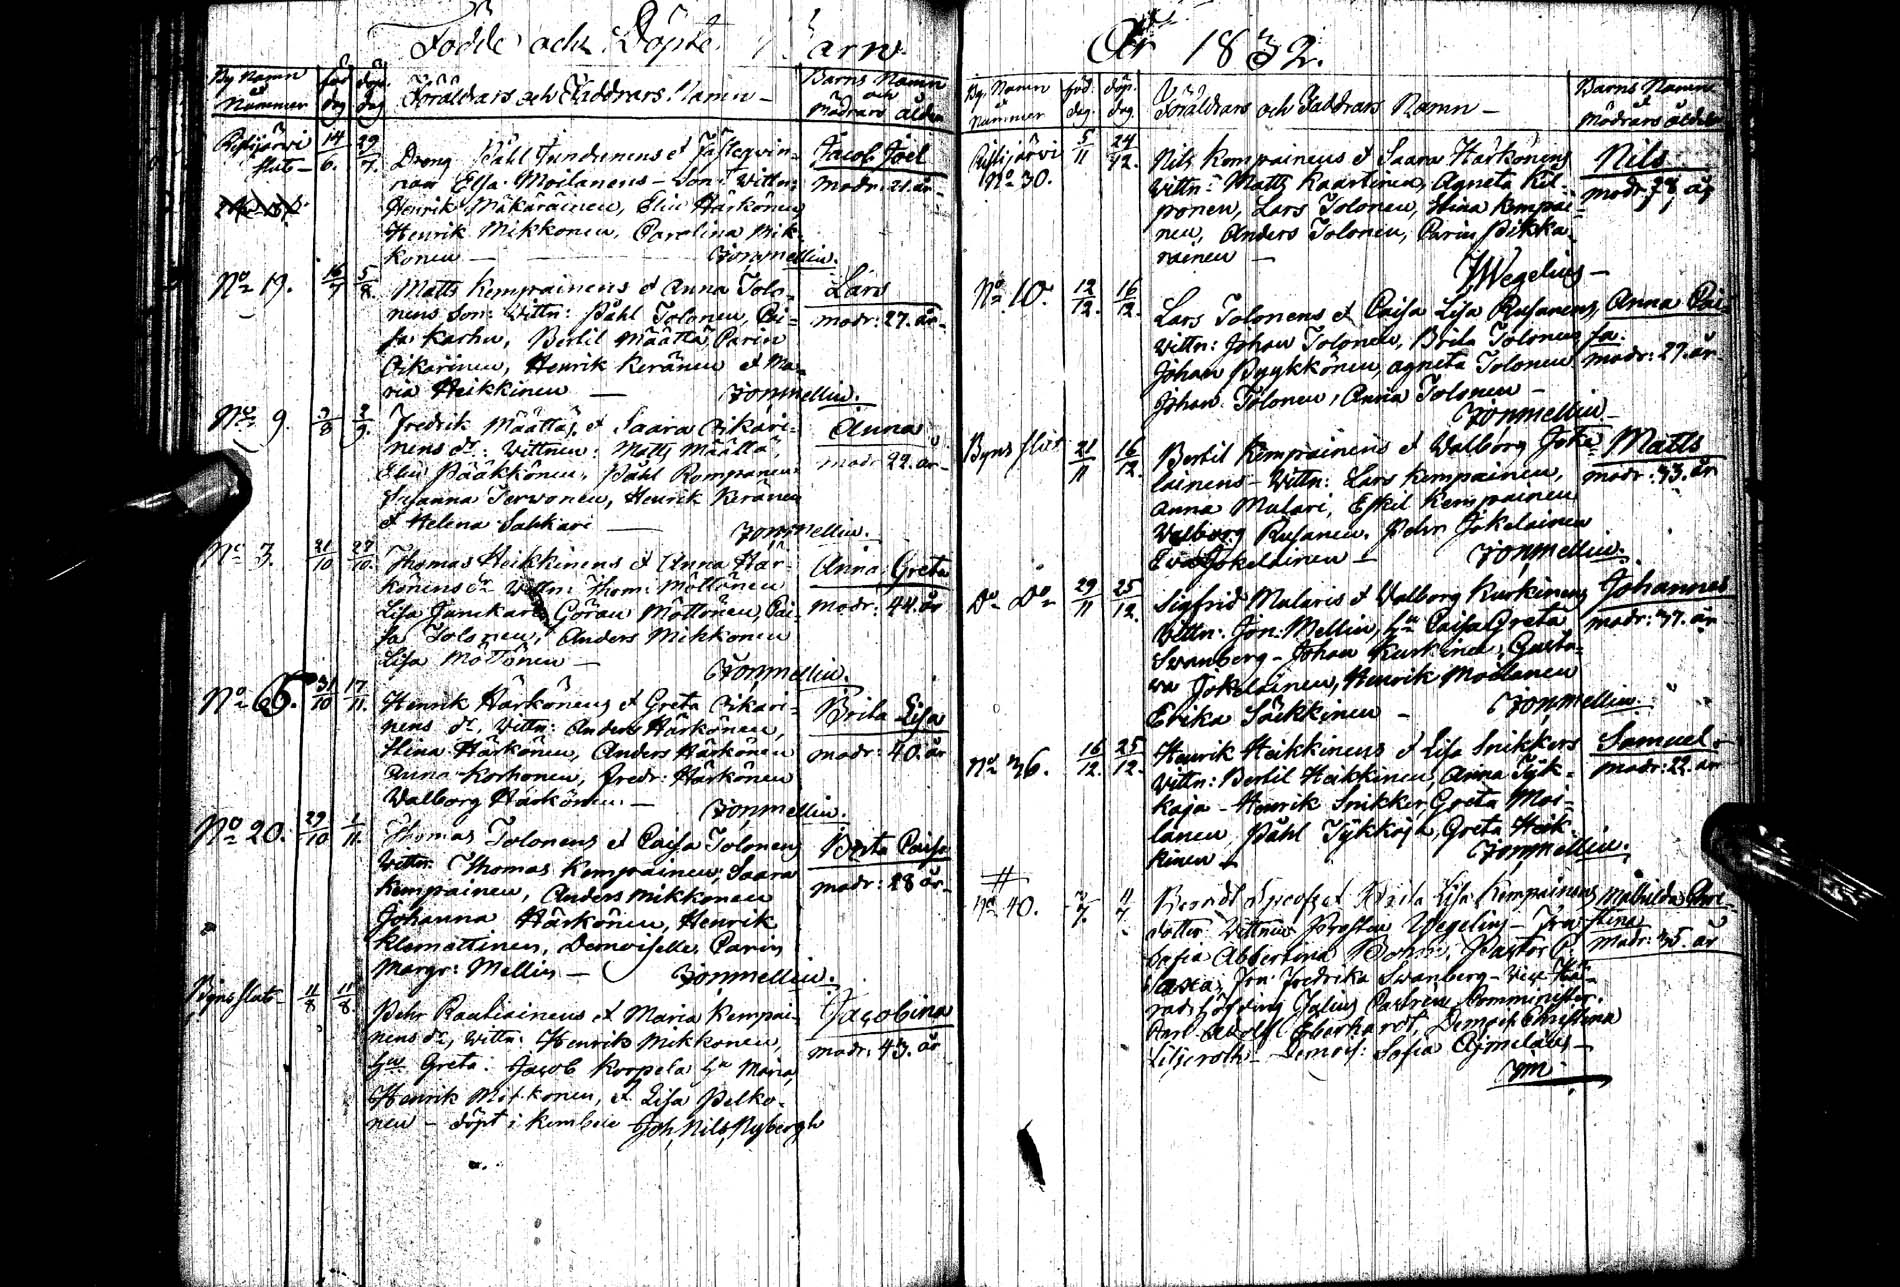 Födde och Döpte Barn
By Namn
et
Nummer
föd.
dag
döp.
dag
Föräldrars och Faddrars Namn –
Barns Namn
och
Mödrars ålder
Ristijärvi
14/6. 29/7.
Dreng Påhl et Fästeqvin-
nan Elsa Moilanens – Son: Wittn:
Henrik Mäkäräinen, Elin Härkönen,
Henrik Mikkonen, Carolina Mik-
konen –
Jon. Mellin.
Jacob Joel
modr: 21. år –
No 19. 16/7 5/8.
Matts Kemppainens et Anna Tolo-
nens son: Wittn: Påhl Tolonen, Cai-
sa Karhu, Bertil Määttä, Carin
Oikarinen, Henrik Keränen et Ma-
ria Heikkinen –
Jon. Mellin.
Lars
modr: 27. år –
No 9. 2/9.
Fredrik Määttäs et Saara Oikari-
nens dr: Wittnen: Matts Määttä,
Elin Pääkkönen, Påhl Komppanen
Susanna Terwonen, Henrik Keränen
et Helena Sahkari –
Jon. Mellin.
Anna
modr 22. år –
No 3. 21/10 27/10.
Thomas Heikkinens et Anna Här-
könens dr Wittn: Thom: Möttönen
Lisa Göran Möttönen, Cai-
sa Tolonen, Anders Mikkonen
Lisa Möttönen –
Jon. Mellin.
Anna Greta
modr: 44. år
No 65. 31/10 17/11.
Henrik Härkönens et Greta Oikari-
nens dr, Wittn: Anders Härkönen,
Stina Härkönen, Anders Härkönen
Anna Korhonen, Fredr: Härkönen
Walborg Härkönen –
Jon. Mellin.
Brita Lisa
modr: 40. år
No 20. 29/10 1/11.
Thomas Tolonens et Caisa Tolonens
Wittn: Thomas Kempainen, Saara
Kempainen, Anders Mikkonen
Johanna Härkönen, Henrik
Klemettinen, Demoiselle Carin
Margr: Mellin –
Jon. Mellin.
Brita Caisa
modr: 28 år –
Byns 11/8 11/8.
Pehr Raatiainens et Maria Kempai-
nens dr, Wittn: Henrik Mikkonen,
Greta. Jacob Korpela hu Maria,
Henrik Mikkonen, et Lisa Pelko-
nen – döpt i Kembele Joh. Nils Nybergh
Jacobina
modr: 43. år
År 1832.
By Namn
Nummer
föd.
dag.
döp.
dag.
Föräldrars och Faddrars Namn –
Barns Namn
et
Mödrars ålder
Ristijärvi
No 30.
5/11 24/12.
Nils Kempainens et Saara Härkönens
Wittn: Matts Kaartinen, Agneta Kil-
ponen, Lars Tolonen, Stina Kempai-
nen, Anders Tolonen, Carin Pikka-
rainen –
Wegelius –
Nils
modr: 38, år
No 10. 12/12. 16/12.
Lars Tolonens et Caisa Lisa Rusanens,
Wittn: Johan Tolonen, Brita Tolonen
Johan Pyykkönen, Agneta Tolonen
Johan Tolonen, Anna Tolonen –
Jon. Mellin –
Anna Cai-
sa.
modr: 27. år
21/11 16/12.
Bertil Kempainens et Walborg Joke-
lainens – Wittn: Lars Kempainen,
Anna Mulari, Eskil Kempainen
Walborg Rusanen, Pehr Jokelainen
Eva Jokelainen –
Jon. Mellin.
Matts
modr: 33. år
Do Do 29/11 25/12.
Sigfrid Mularis et Walborg Kurkinens
Wittn: Jon: Mellin, hu Caisa Greta
Swanberg – Johan Kurkinen, Gusta-
va Jokelainen, Henrik Moilanen
Erika Säikkinen –
Jon. Mellin.
Johannes
modr: 37. år
No 36. 16/12. 25/12.
Henrik Heikkinens et Lisa Snikkers
Wittn: Bertil Heikkinen, Anna Tyk-
käjä – Henrik Snikker, Greta Moi-
lanen Påhl Tykkäjä, Greta Heik-
kinen –
Jon. Mellin.
Samuel –
modr: 22. år
#
No 40.
et Brita Lisa Kempainens
dotter Wittnen Prosten Wegelius –
Sofia Albertina Pastor C.
Fredrika Swanberg –
Julius Castren Comminister.
Carl Adolf Eberhardt, Demois. Christina
Liljeroth – Demois: Sofia Ajmelæus –
Jm
Mathilda Chri-
stina
modr: 35. år